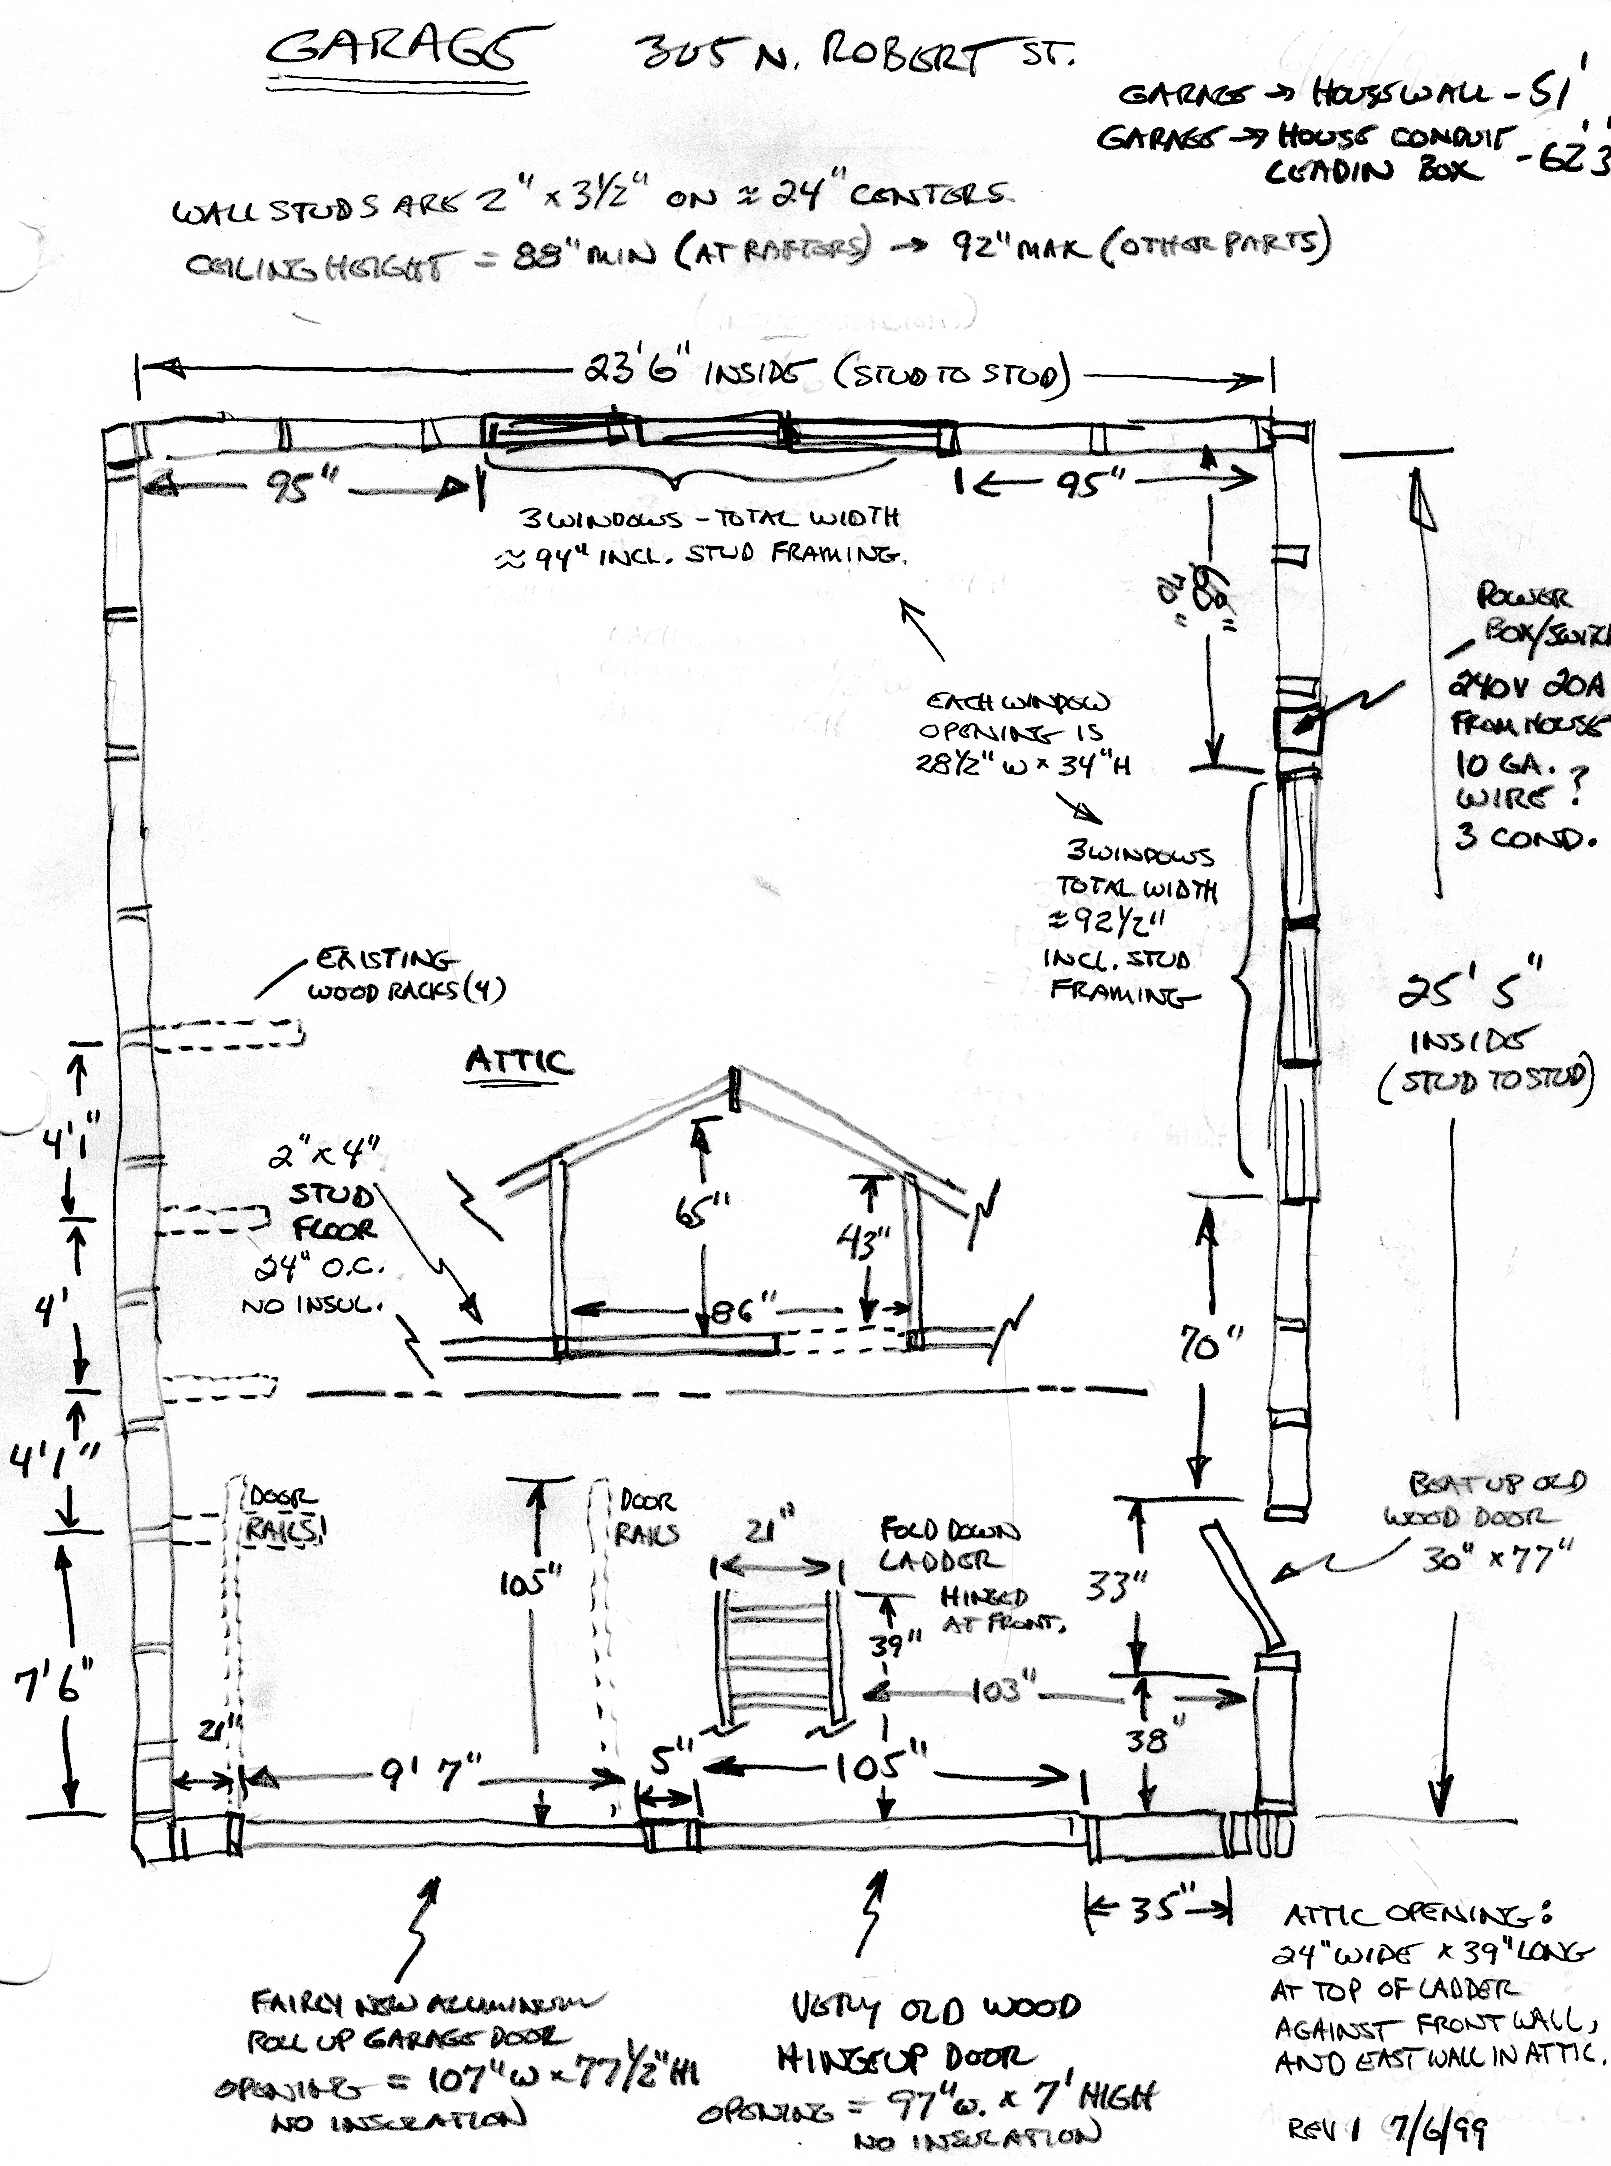 GARAGE 305 N. ROBERT ST.
GARAGE → HOUSE WALL - 51'
GARAGE → HOUSE CONDUIT
LEADIN BOX - 62'3
WALL STUDS ARE 2" × 3 1/2" ON ≈ 24" CENTERS.
CEILING HEIGHT = 88" MIN (AT RAFTERS) → 92" MAX (OTHER PARTS)
23'6" INSIDE (STUD TO STUD)
95"
95"
3 WINDOWS - TOTAL WIDTH
≈ 94" INCL. STUD FRAMING.
EACH WINDOW
OPENING IS
28 1/2" W × 34" H
POWER
BOX/SWITC
240V 20A
FROM HOUSE
10 GA.
WIRE ?
3 COND.
3 WINDOWS
TOTAL WIDTH
≈ 92 1/2"
INCL. STUD
FRAMING
25' 5"
INSIDE
(STUD TO STUD)
EXISTING
WOOD RACKS (4)
ATTIC
2" × 4"
STUD
FLOOR
24" O.C.
NO INSUL.
65"
43"
86"
4'1"
4'
4'1"
7'6"
70"
DOOR
RAILS
105"
DOOR
RAILS
21"
FOLD DOWN
LADDER
HINGED
AT FRONT.
39"
103"
33"
38"
BEAT UP OLD
WOOD DOOR
30" × 77"
21"
9' 7"
5"
105"
35"
FAIRLY NEW ALUMINUM
ROLL UP GARAGE DOOR
OPENING = 107" W × 77 1/2" HI
NO INSULATION
VERY OLD WOOD
HINGE UP DOOR
OPENING = 97" W. × 7' HIGH
NO INSULATION
ATTIC OPENING:
24" WIDE × 39" LONG
AT TOP OF LADDER
AGAINST FRONT WALL,
AND EAST WALL IN ATTIC.
REV 1 7/6/99